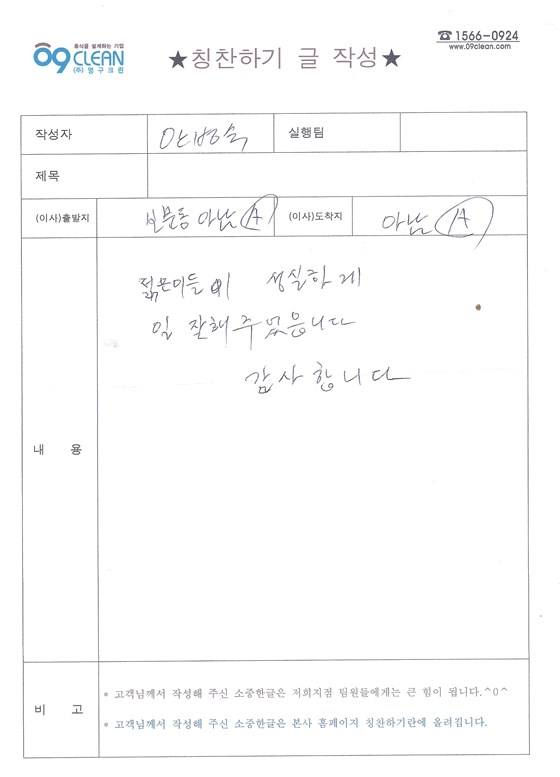 휴식을 설계하는 기업
09 CLEAN
(주)영구크린
☎ 1566-0924
www.09clean.com
★칭찬하기 글 작성★
작성자 안병숙 실행팀
제목
(이사)출발지 아남 A (이사)도착지 아남 A
젊은이들이 성실하게
일 잘해 주었읍니다
감사합니다
내 용
비 고
* 고객님께서 작성해 주신 소중한글은 저희지점 팀원들에게는 큰 힘이 됩니다.^0^
* 고객님께서 작성해 주신 소중한글은 본사 홈페이지 칭찬하기란에 올려집니다.